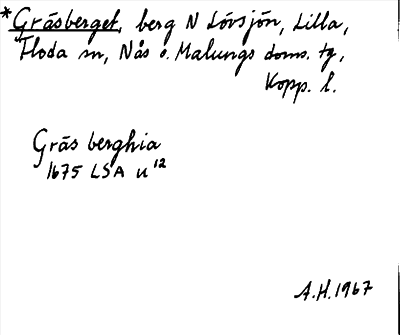 *Gräsberget, berg N Lövsjön, Lilla,
Floda sn, Nås o. Malungs doms. tg,
Kopp. l.
Gräs berghia
1675 LSA u¹²
A.H. 1967